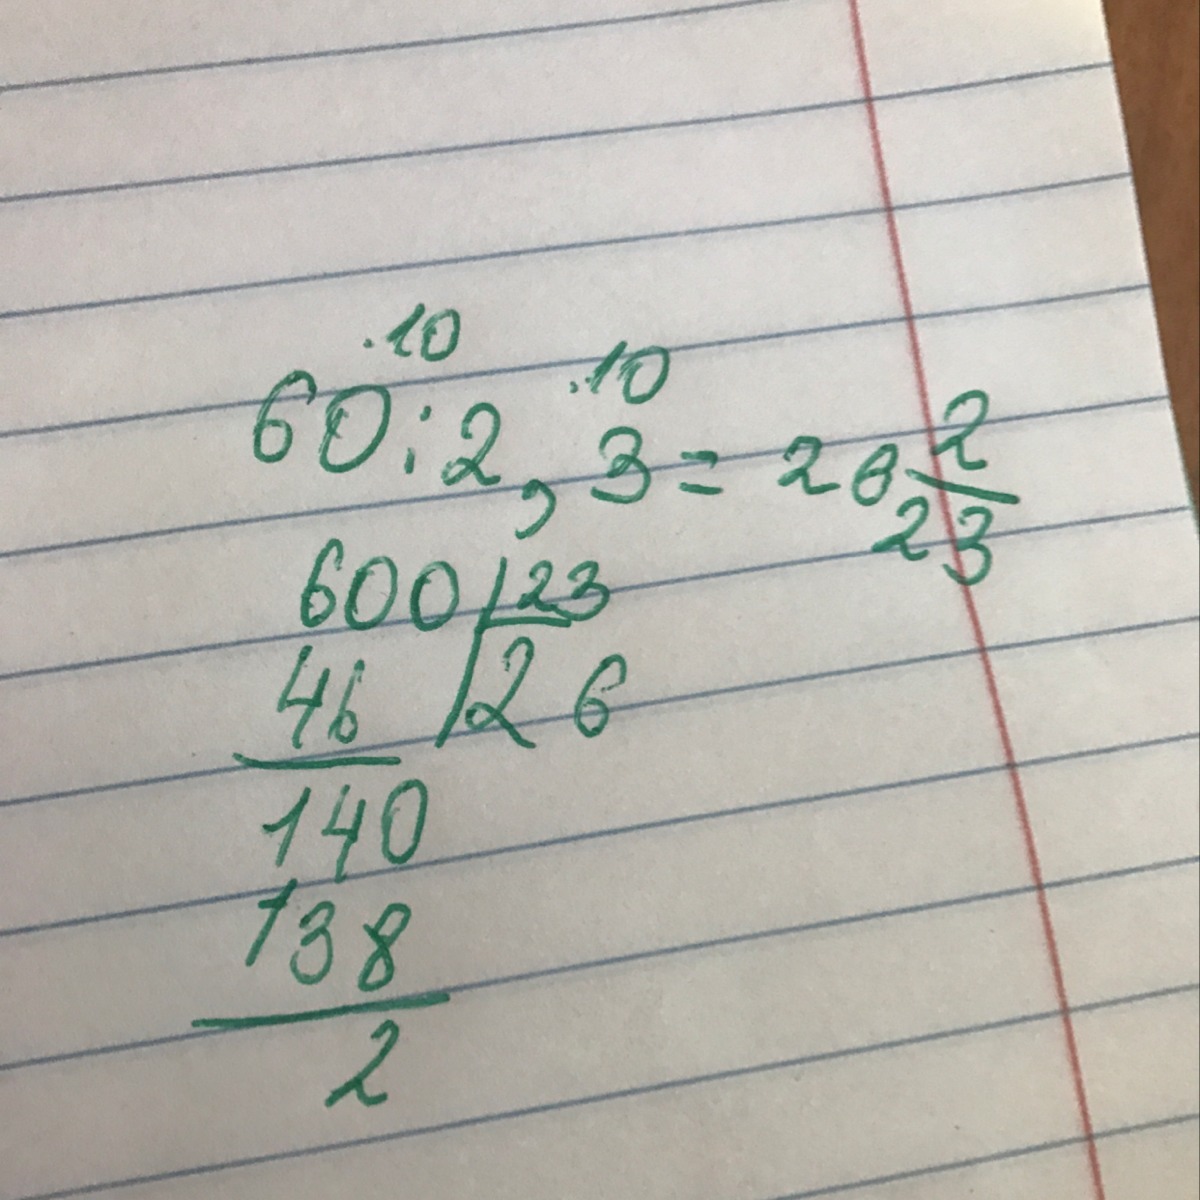 ·10 ·10
60:2,3=26 2/23
600 23
46 26
140
138
2